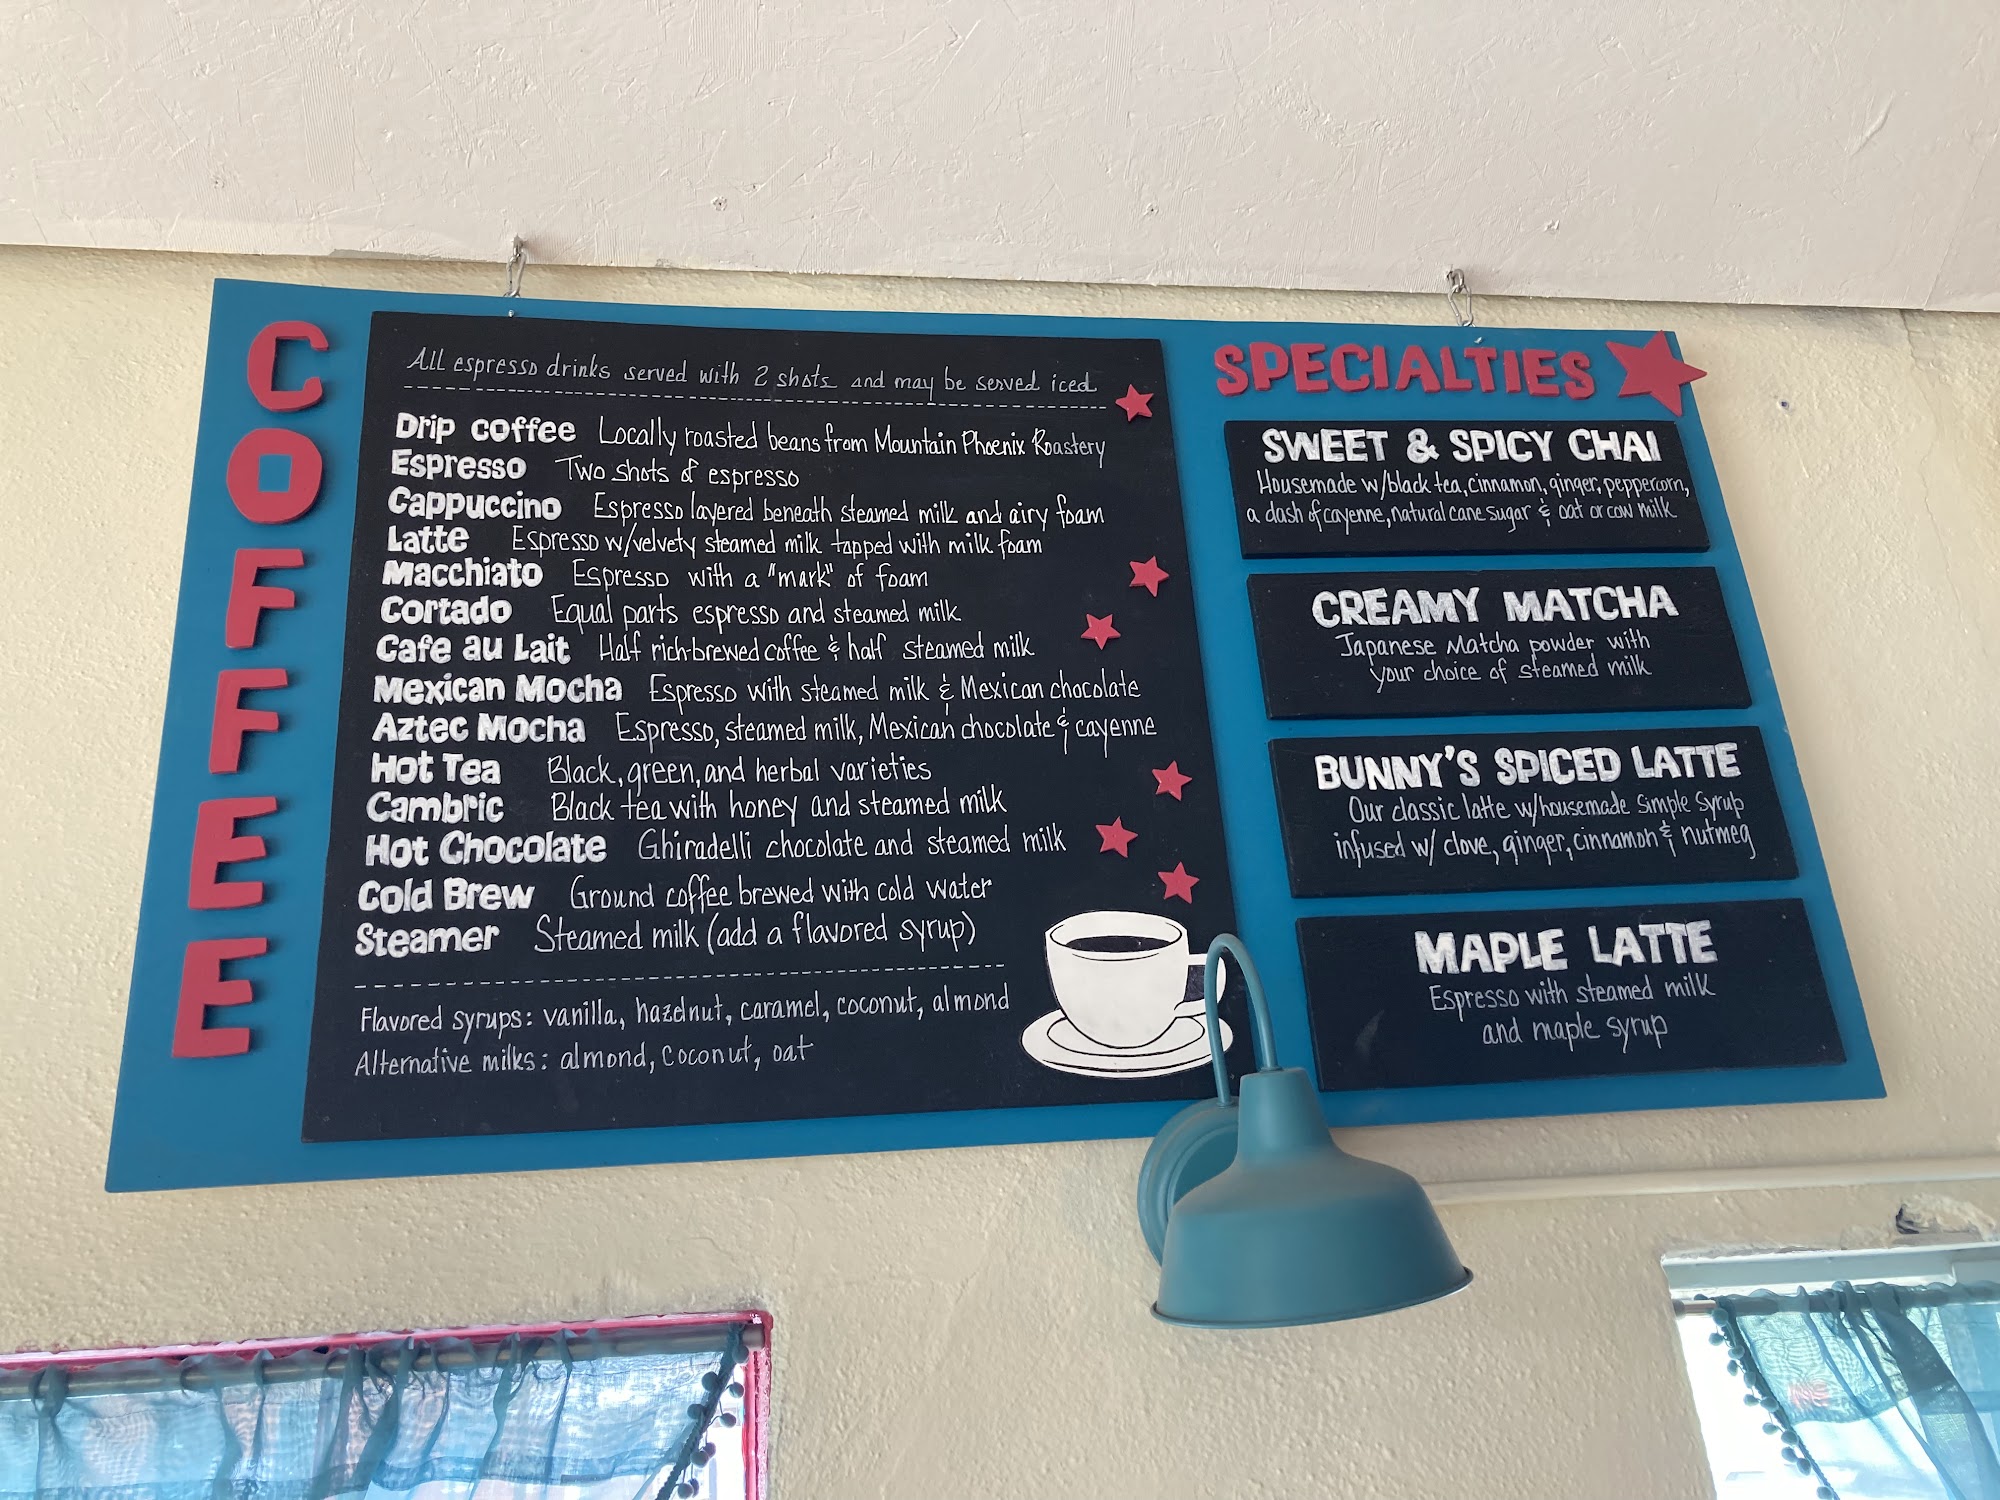 COFFEE
All espresso drinks served with 2 shots and may be served iced
Drip coffee Locally roasted beans from Mountain Phoenix Roastery
Espresso Two shots of espresso
Cappuccino Espresso layered beneath steamed milk and airy foam
Latte Espresso w/velvety steamed milk topped with milk foam
Macchiato Espresso with a "mark" of foam
Cortado Equal parts espresso and steamed milk
Cafe au Lait Half rich-brewed coffee & half steamed milk
Mexican Mocha Espresso with steamed milk & Mexican chocolate
Aztec Mocha Espresso, steamed milk, Mexican chocolate & cayenne
Hot Tea Black, green, and herbal varieties
Cambric Black tea with honey and steamed milk
Hot Chocolate Ghiradelli chocolate and steamed milk
Cold Brew Ground coffee brewed with cold water
Steamer Steamed milk (add a flavored syrup)
Flavored syrups: vanilla, hazelnut, caramel, coconut, almond
Alternative milks: almond, coconut, oat
SPECIALTIES
SWEET & SPICY CHAI
Housemade w/black tea, cinnamon, ginger, peppercorn,
a dash of cayenne, natural cane sugar & oat or cow milk
CREAMY MATCHA
Japanese Matcha powder with
your choice of steamed milk
BUNNY'S SPICED LATTE
Our classic latte w/housemade simple syrup
infused w/ clove, ginger, cinnamon & nutmeg
MAPLE LATTE
Espresso with steamed milk
and maple syrup